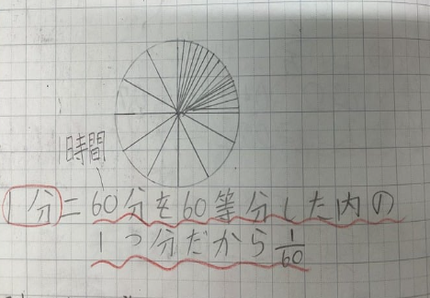 1時間
1分=60分を60等分した内の
1つ分だから1/60